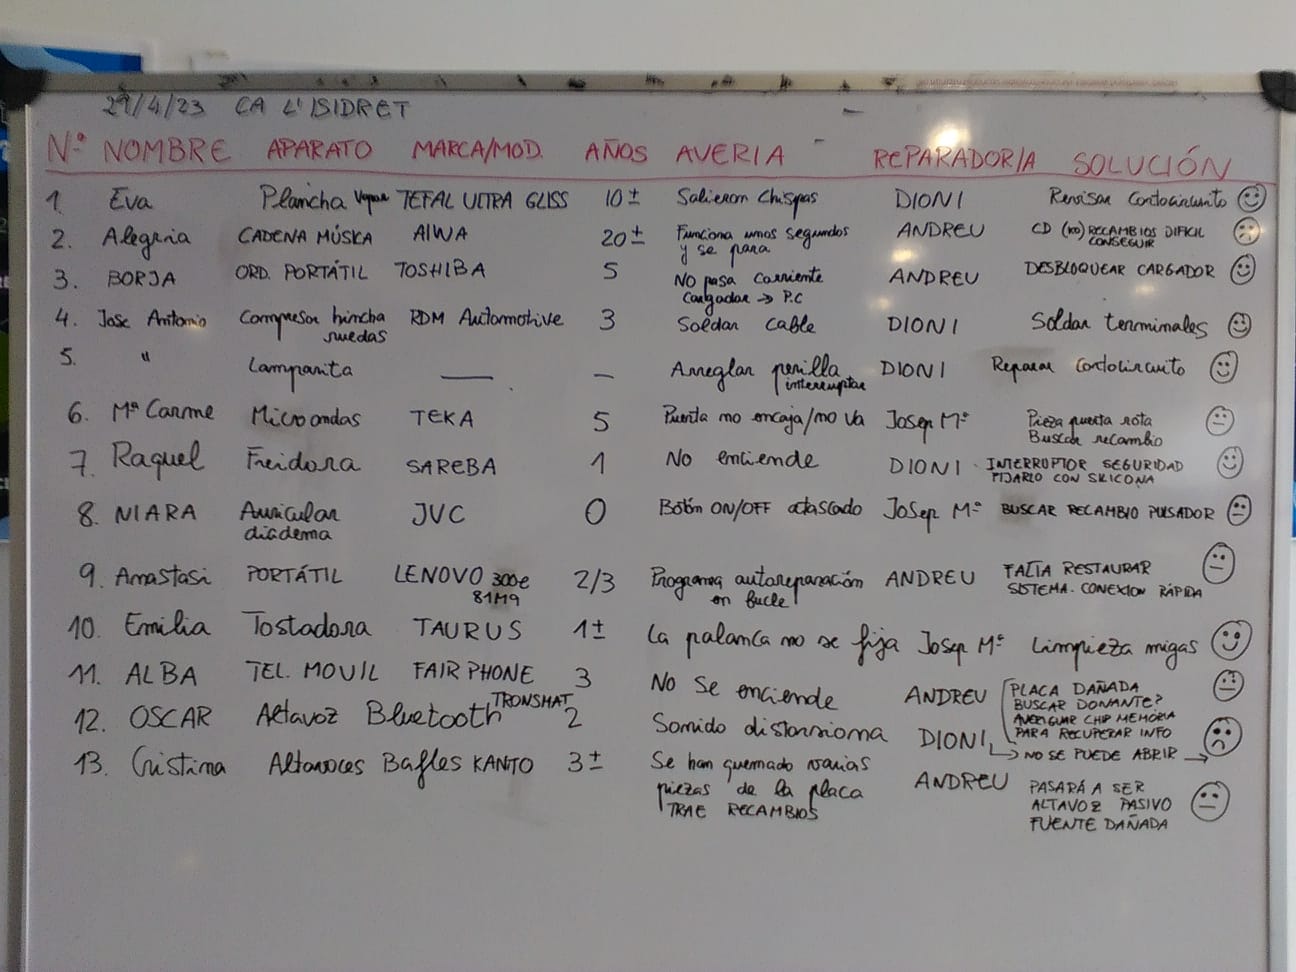 29/4/23 CA L'ISIDRET
Nº NOMBRE APARATO MARCA/MOD. AÑOS AVERIA REPARADOR/A SOLUCIÓN
1. Eva Plancha Vapor TEFAL ULTRA GLISS 10± Salieron chispas DIONI Revisar Cortocircuito
2. Alegria CADENA MÚSICA AIWA 20± Funciona unos segundos y se para ANDREU CD (KO) RECAMBIOS DIFICIL CONSEGUIR
3. BORJA ORD. PORTÁTIL TOSHIBA 5 NO pasa corriente cargador → P.C ANDREU DESBLOQUEAR CARGADOR
4. Jose Antonio Compresor hincha ruedas RDM Automotive 3 Soldar cable DIONI Soldar terminales
5. " Lamparita — — Arreglar perilla interruptor DIONI Reparar Cortocircuito
6. Mª Carme Microondas TEKA 5 Puerta no encaja/no va Josep Mª Pieza puerta rota Buscar recambio
7. Raquel Freidora SAREBA 1 No enciende DIONI INTERRUPTOR SEGURIDAD FIJARLO CON SILICONA
8. NIARA Auricular diadema JVC 0 Botón ON/OFF atascado Josep Mª BUSCAR RECAMBIO PULSADOR
9. Anastasi PORTÁTIL LENOVO 300e 81M9 2/3 Programa autoreparación en bucle ANDREU FALTA RESTAURAR SISTEMA. CONEXION RÁPIDA
10. Emilia Tostadora TAURUS 1± La palanca no se fija Josep Mª Limpieza migas
11. ALBA TEL. MOVIL FAIRPHONE 3 No se enciende ANDREU PLACA DAÑADA BUSCAR DONANTE? AVERIGUAR CHIP MEMORIA PARA RECUPERAR INFO
12. OSCAR Altavoz Bluetooth TRONSMAT 2 Sonido distorsiona DIONI → NO SE PUEDE ABRIR →
13. Cristina Altavoces Bafles KANTO 3± Se han quemado varias piezas de la placa TRAE RECAMBIOS ANDREU PASARÁ A SER ALTAVOZ PASIVO FUENTE DAÑADA